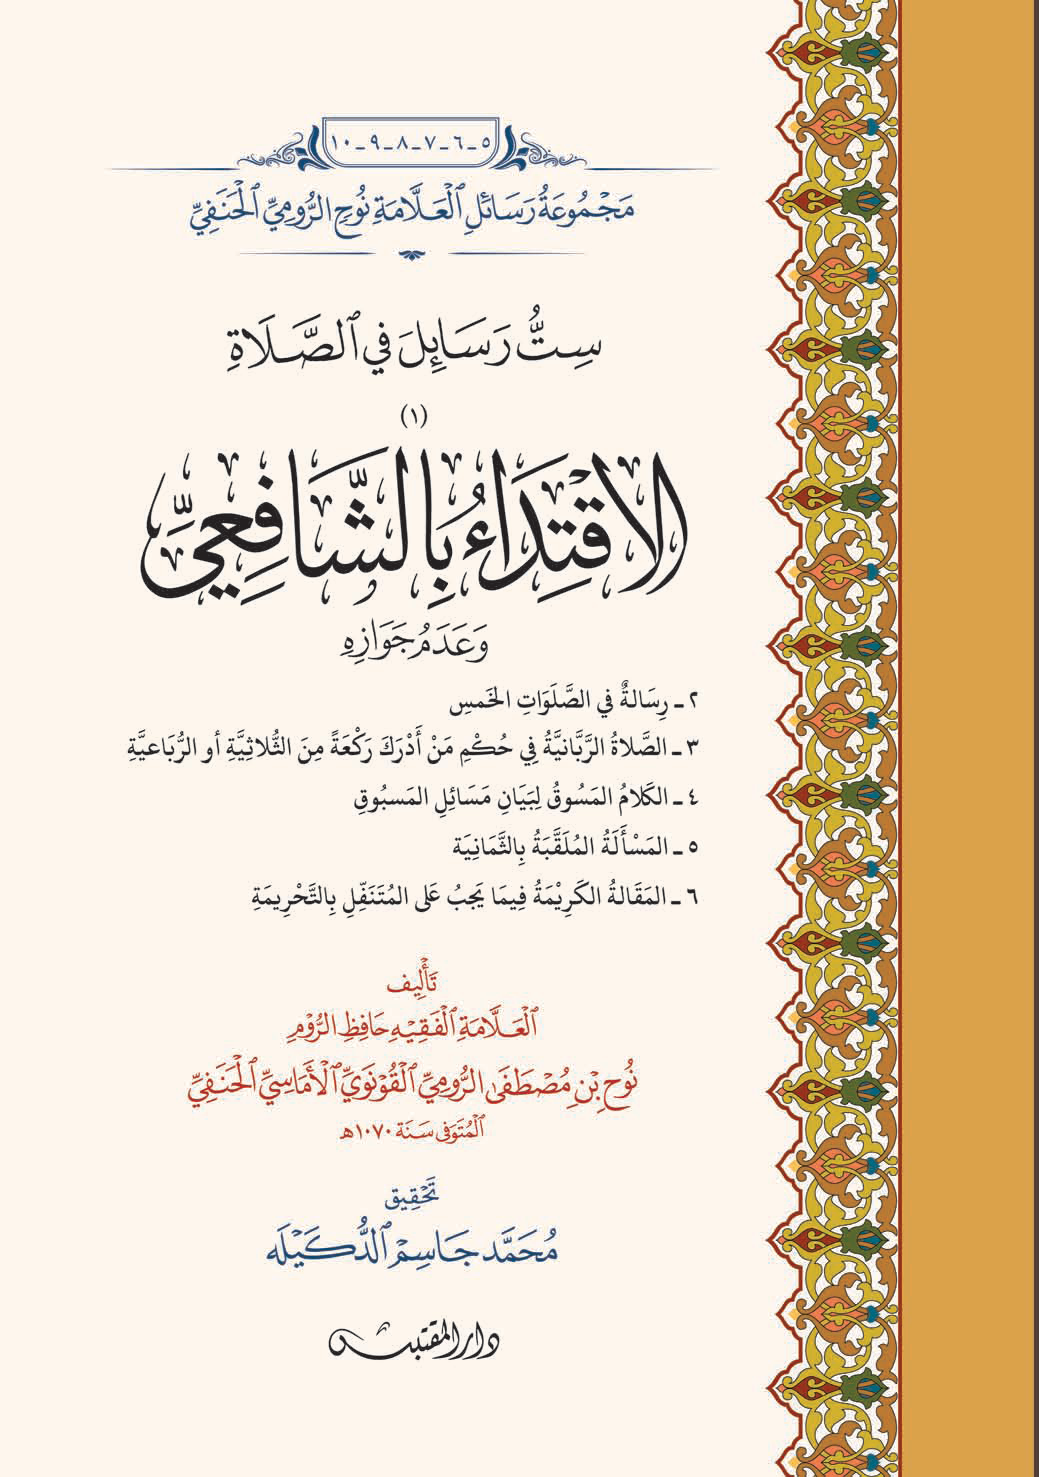 ٥-٦-٧-٨-٩-١٠
مَجْمُوعَةُ رَسَائِلِ ٱلْعَلَّامَةِ نُوحٍ الرُّومِيِّ ٱلْحَنَفِيِّ
سِتُّ رَسَائِلَ فِي ٱلصَّلَاةِ
(١)
الِاقْتِدَاءُ بِالشَّافِعِيِّ
وَعَدَمُ جَوَازِهِ
٢ ـ رِسَالةٌ في الصَّلَوَاتِ الخَمسِ
٣ ـ الصَّلاةُ الرَّبَّانيَّةُ فِي حُكْمِ مَنْ أَدْرَكَ رَكْعَةً مِنَ الثُّلاثِيَّةِ أو الرُّبَاعيَّةِ
٤ ـ الكَلامُ المَسُوقُ لِبَيَانِ مَسَائِلِ المَسبُوقِ
٥ ـ المَسْأَلَةُ المُلَقَّبَةُ بِالثَّمَانِيَة
٦ ـ المَقَالةُ الكَرِيْمَةُ فِيمَا يَجِبُ عَلى المُتَنَفِّلِ بِالتَّحْرِيمَةِ
تَأْلِيف
ٱلْعَلَّامَةِ ٱلْفَقِيْهِ حَافِظِ الرُّوْمِ
نُوْحِ بْنِ مُصْطَفَى الرُّومِيِّ ٱلْقُوْنَوِيِّ ٱلْأَمَاسِيِّ ٱلْحَنَفِيِّ
ٱلْمُتَوَفَى سَنَة ١٠٧٠هـ
تَحْقِيق
مُحَمَّد جَاسِمْ ٱلدُّكَيْلَه
دار المقتبس